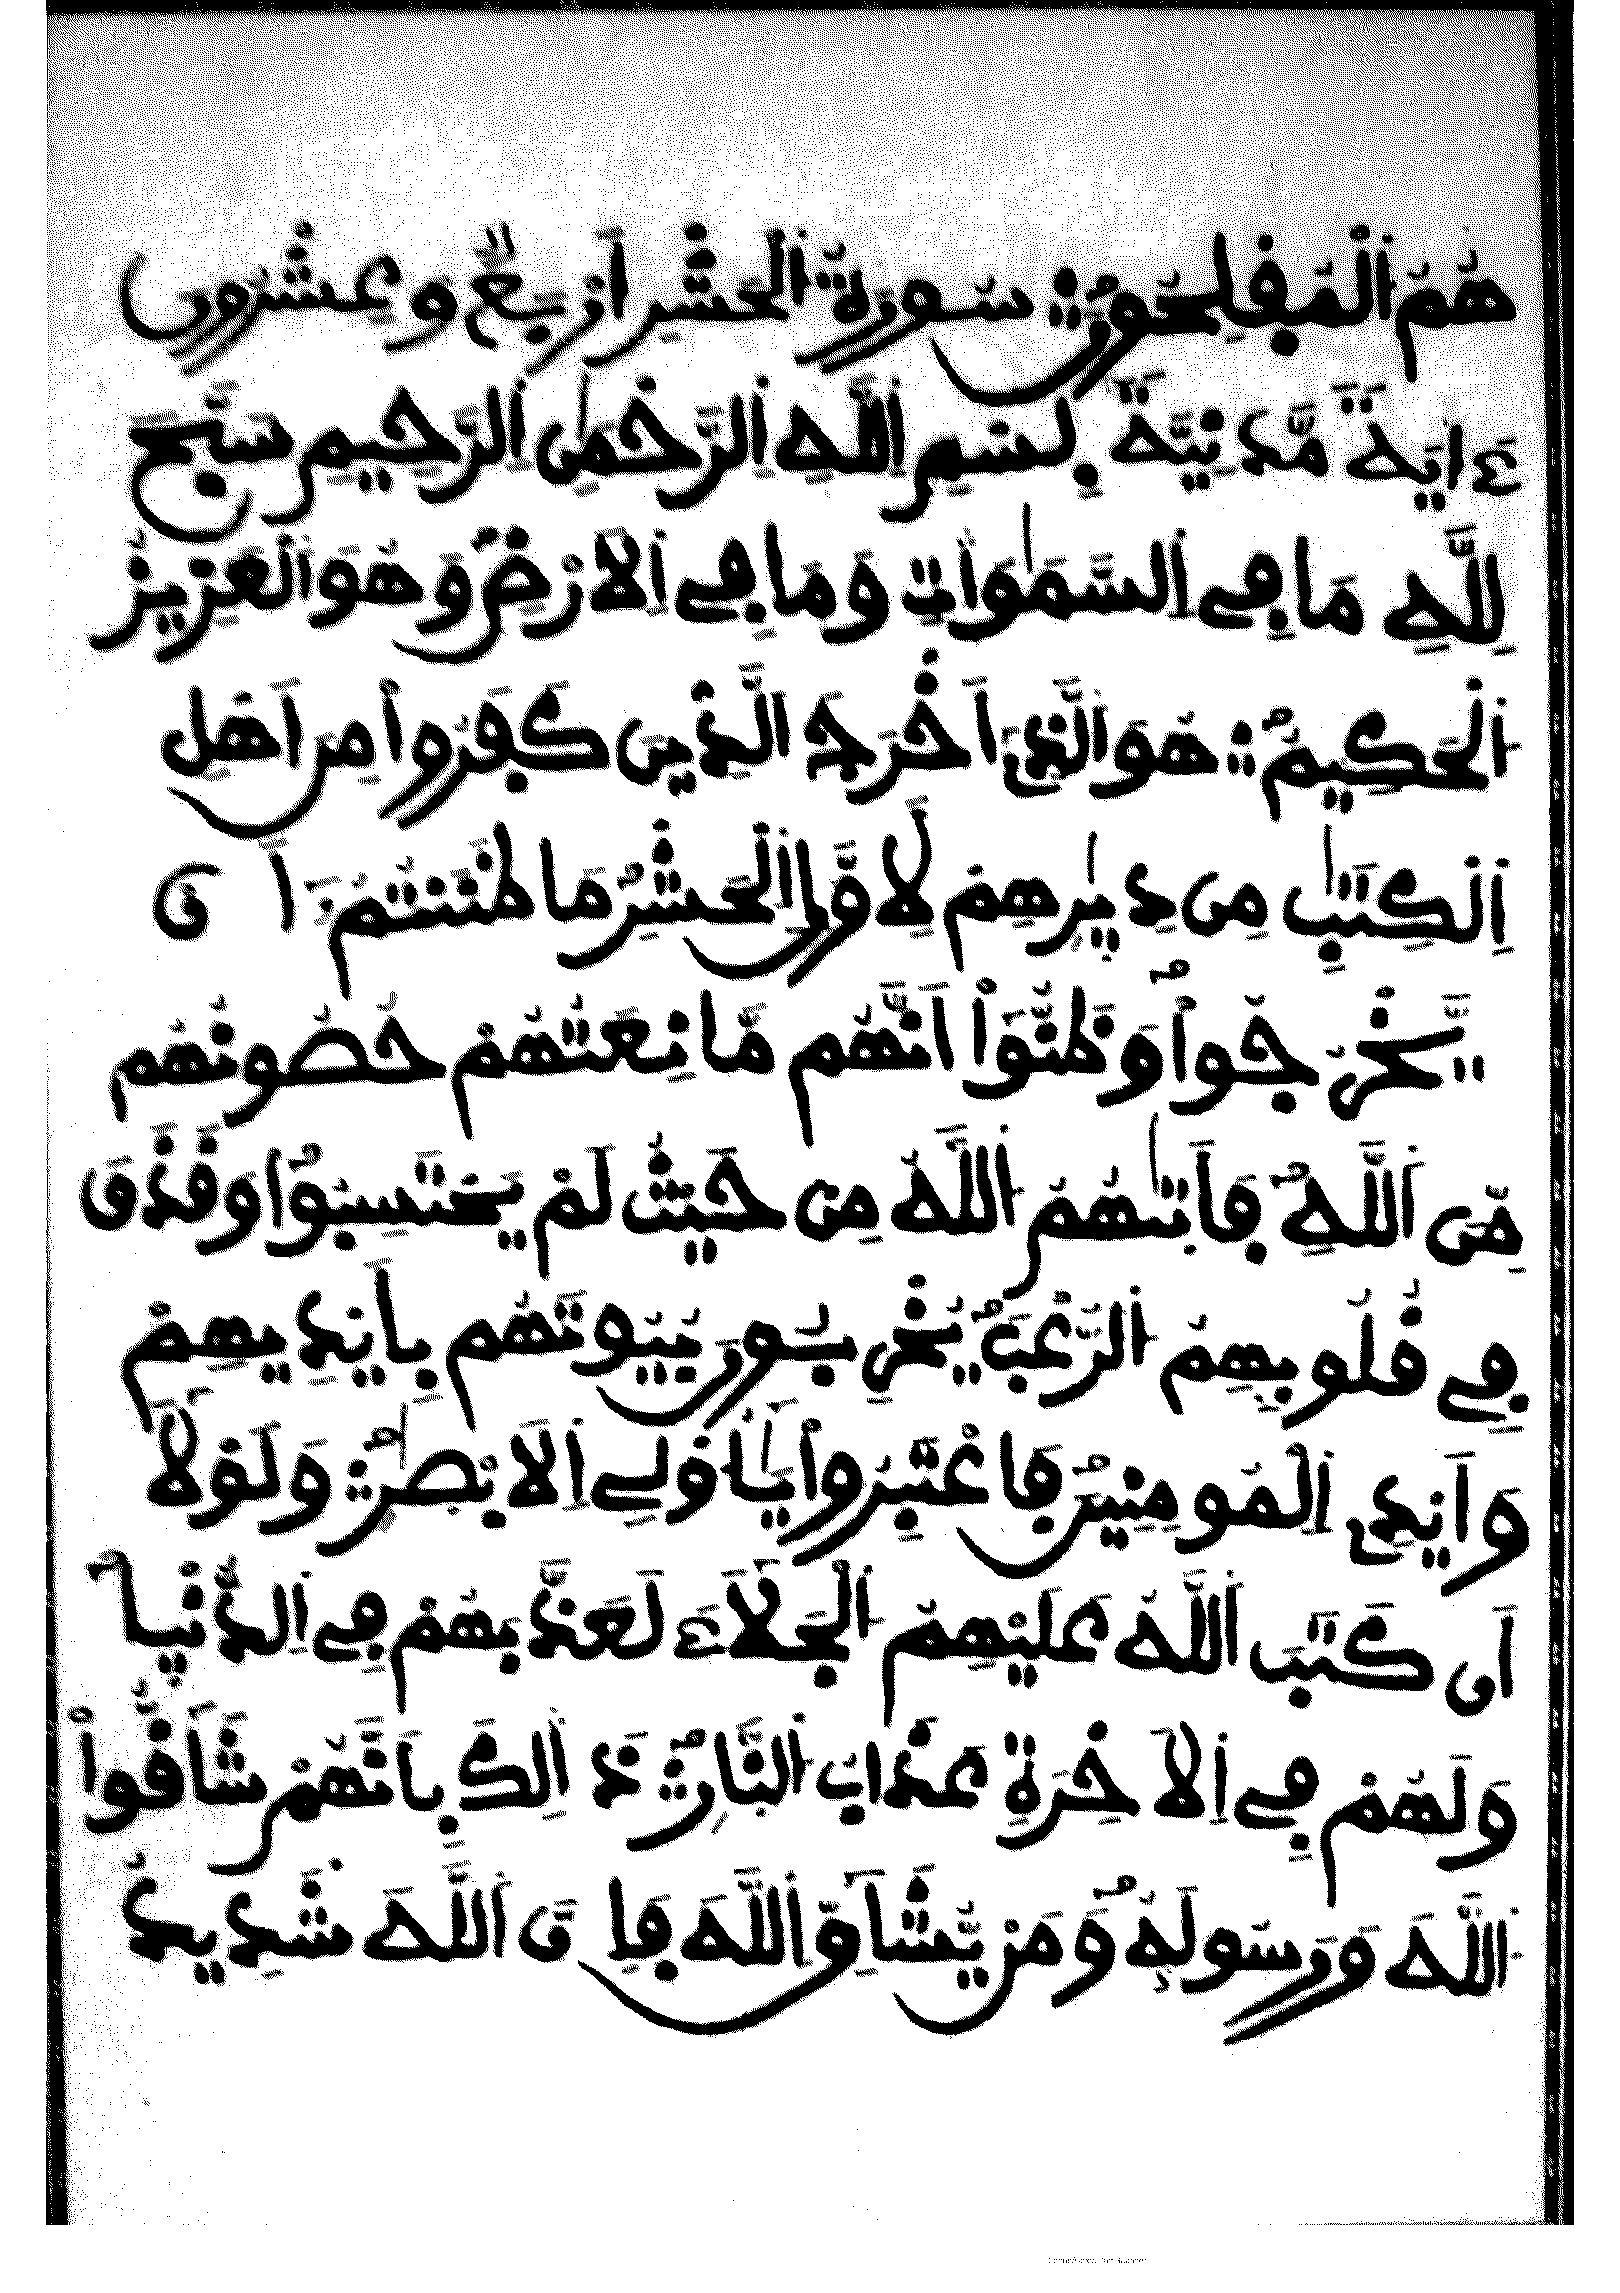 هُمُ الْمُفْلِحُونَ ۞ سُورَةُ الْحَشْرِ أَرْبَعٌ وَعِشْرُونَ
ءَايَةً مَّدَنِيَّةٌ بِسْمِ اللَّهِ الرَّحْمَٰنِ الرَّحِيمِ سَبَّحَ
لِلَّهِ مَا فِي السَّمَٰوَاتِ وَمَا فِي الْأَرْضِ وَهُوَ الْعَزِيزُ
الْحَكِيمُ ۞ هُوَ الَّذِي أَخْرَجَ الَّذِينَ كَفَرُوا مِنْ أَهْلِ
الْكِتَٰبِ مِن دِيَٰرِهِمْ لِأَوَّلِ الْحَشْرِ مَا ظَنَنتُمْ أَن
يَّخْرُجُوا وَظَنُّوا أَنَّهُم مَّانِعَتُهُمْ حُصُونُهُم
مِّنَ اللَّهِ فَأَتَىٰهُمُ اللَّهُ مِنْ حَيْثُ لَمْ يَحْتَسِبُوا وَقَذَفَ
فِي قُلُوبِهِمُ الرُّعْبَ يُخْرِبُونَ بُيُوتَهُم بِأَيْدِيهِمْ
وَأَيْدِي الْمُومِنِينَ فَاعْتَبِرُوا يَٰأُولِي الْأَبْصَٰرِ ۞ وَلَوْلَا
أَن كَتَبَ اللَّهُ عَلَيْهِمُ الْجَلَاءَ لَعَذَّبَهُمْ فِي الدُّنْيَا
وَلَهُمْ فِي الْأَخِرَةِ عَذَابُ النَّارِ ۞ ذَٰلِكَ بِأَنَّهُمْ شَاقُّوا
اللَّهَ وَرَسُولَهُ وَمَنْ يُّشَاقِّ اللَّهَ فَإِنَّ اللَّهَ شَدِيدُ